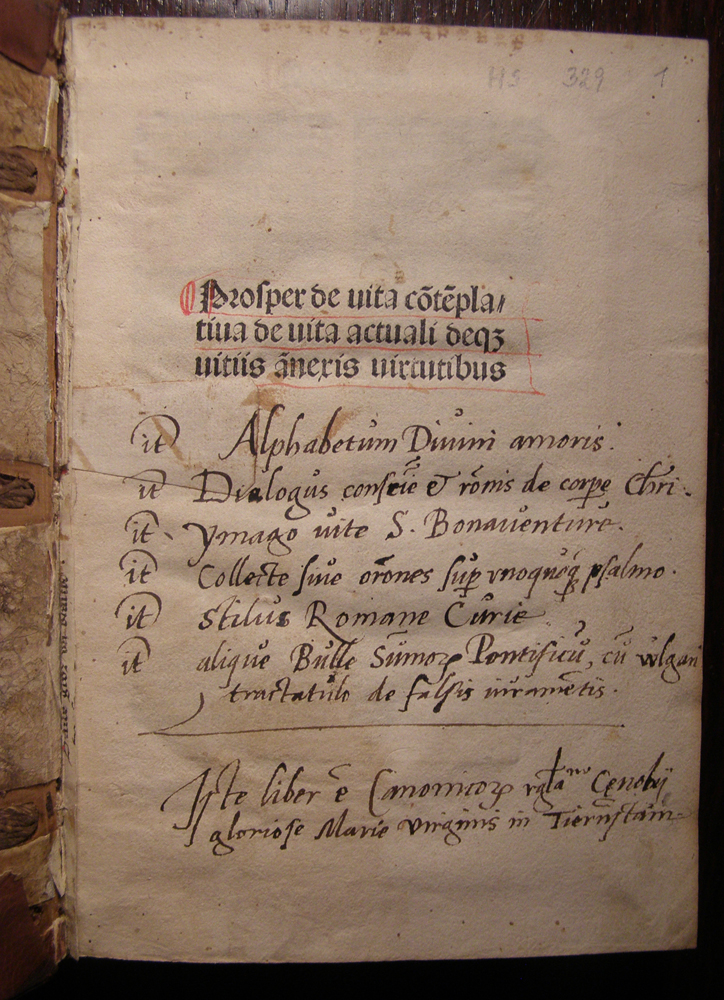 HS 329 1
Proſper de uita cõtẽpla⸗
tiua de uita actuali deqꝫ
uitiis ãnexis uirtutibus
it Alphabetum Diuini amoris.
it Dialogus conſciẽ & rõnis de corpe Chri.
it. ymago uite S. Bonauenture.
it Collecte ſiue orõnes ſup vnoquoqꝫ pſalmo.
it Stilus Romane Curie
it alique Bulle Sũmoꝝ Pontificũ, cũ vulgari
tractatulo de falſis iuramẽtis.
Iſte liber ẽ Canonicoꝝ Cęnobij
glorioſe Marie virginis in Tiernſtain